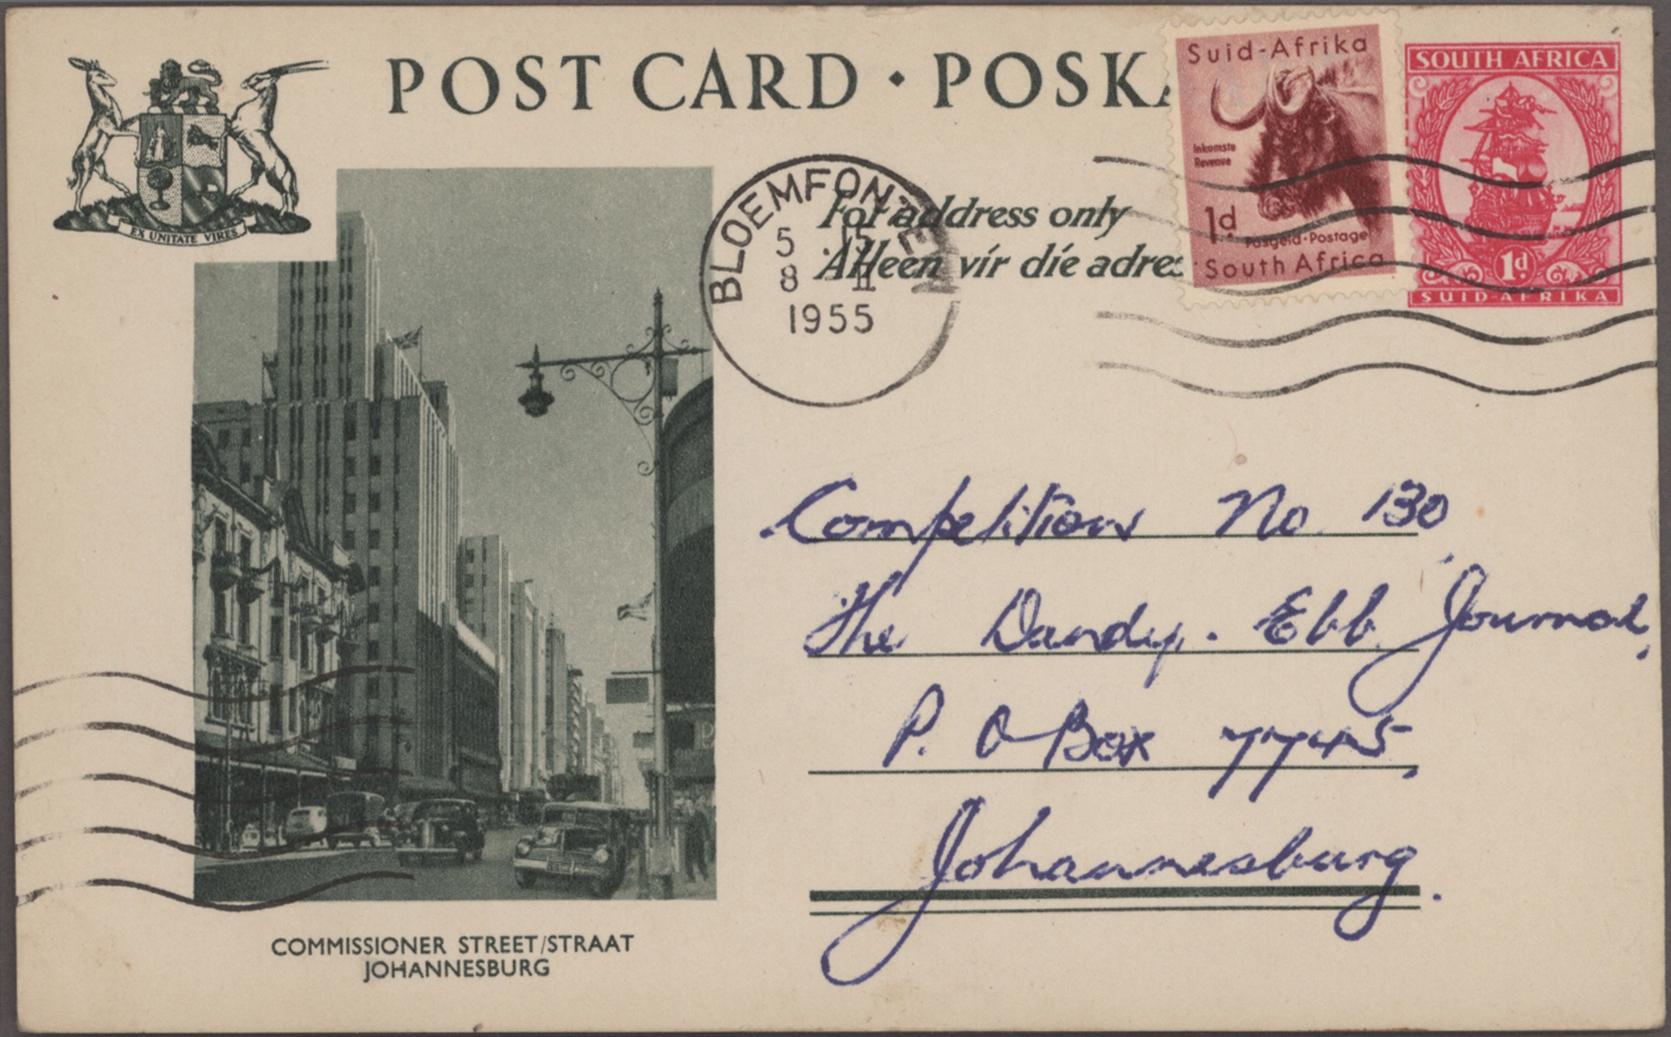 POST CARD • POSK
EX UNITATE VIRES
Suid-Afrika
Inkomste
Revenue
1d
Posgeld·Postage
South Africa
SOUTH AFRICA
1d
SUID-AFRIKA
BLOEMFONTEIN
5
8 II
1955
For address only
Alleen vir die adres
Competition No. 130
The Dandy. Ebb Journal,
P. O Box 7745,
Johannesburg.
COMMISSIONER STREET/STRAAT
JOHANNESBURG